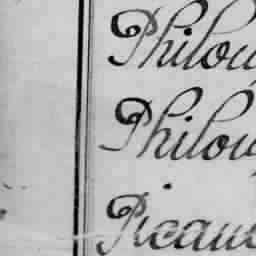 Philou
Philou
Picand